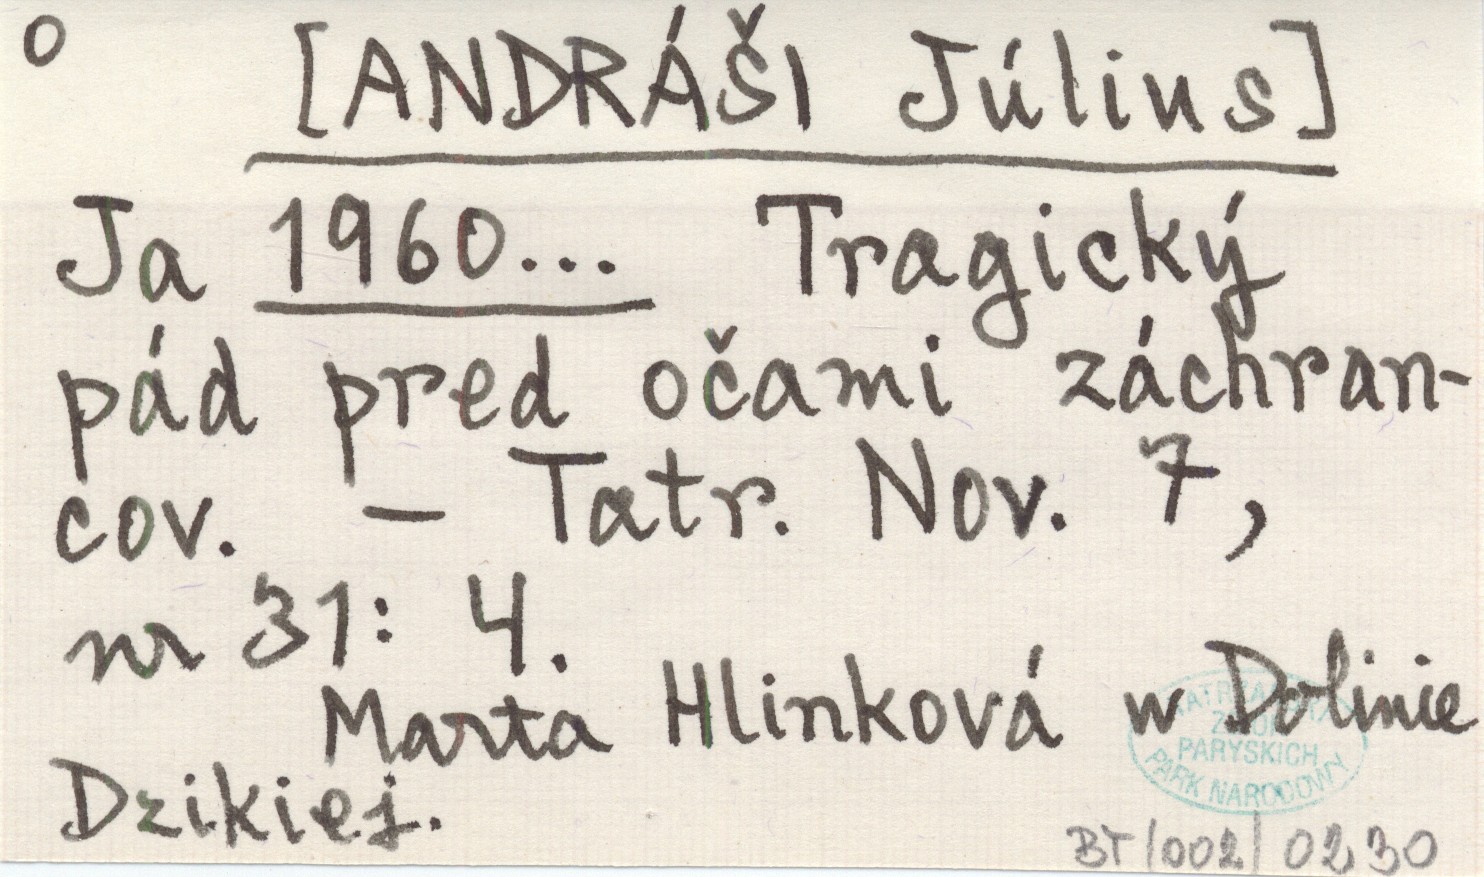 o [ANDRÁŠI Július]
Ja 1960... Tragický
pád pred očami záchran-
cov. – Tatr. Nov. 7,
nr 31: 4.
Marta Hlinková w Dolinie
Dzikiej.
PARYSKICH
PARK NARODOWY
BT/002/0230